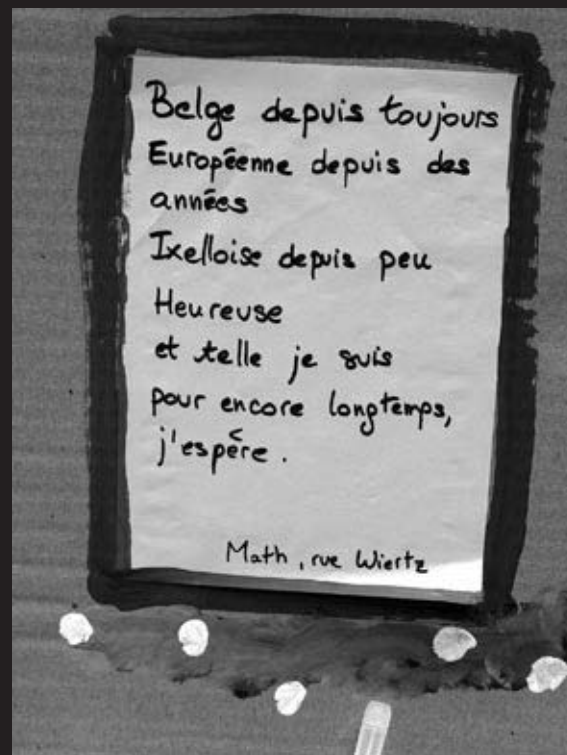 Belge depuis toujours
Européenne depuis des
années
Ixelloise depuis peu
Heureuse
et telle je suis
pour encore longtemps,
j'espère.
Math, rue Wiertz